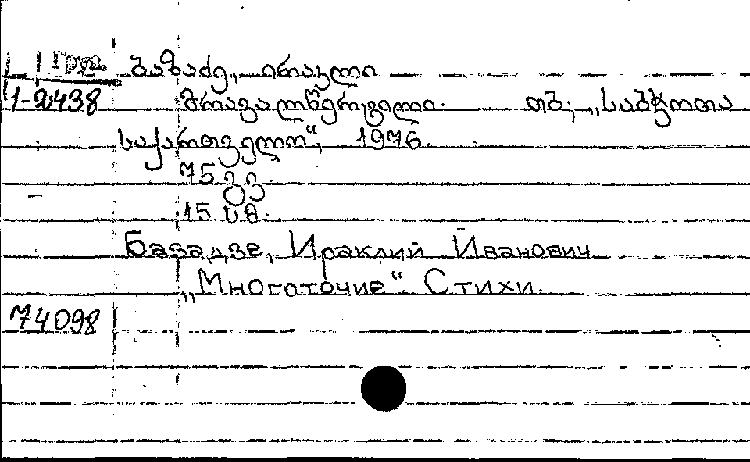 Груз. ბაზაძე, ირაკლი
1-2438 მრავალწერტილი. თბ., „საბჭოთა
საქართველო“, 1976.
75 გვ.
15 კპ.
Базадзе, Ираклий Иванович
„Многоточие“. Стихи.
74098